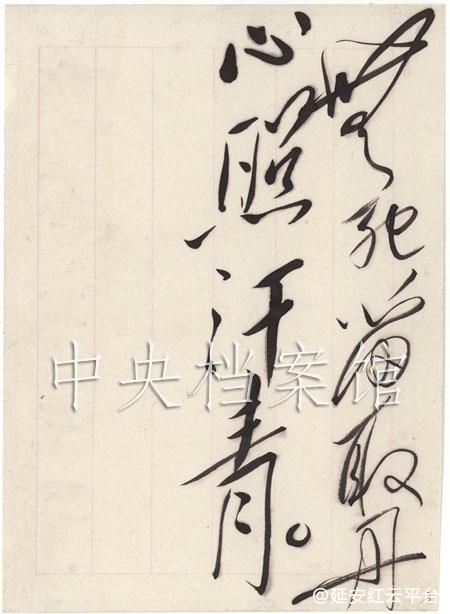 無死留取丹
心照汗青。
中央档案馆
@延安红云平台